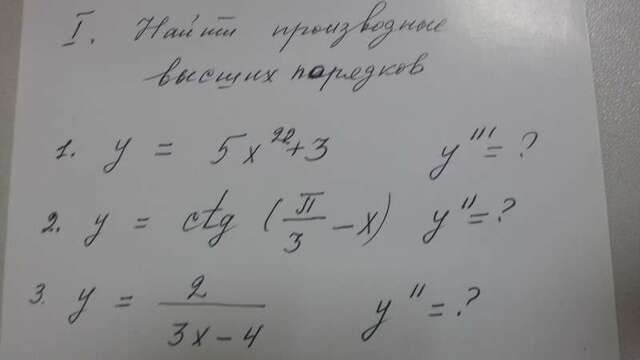 I. Найти производные
высших порядков
1. y = 5x²²+3 y'''= ?
2. y = ctg (π/3 − x) y''= ?
3. y = 2/(3x − 4) y''= ?